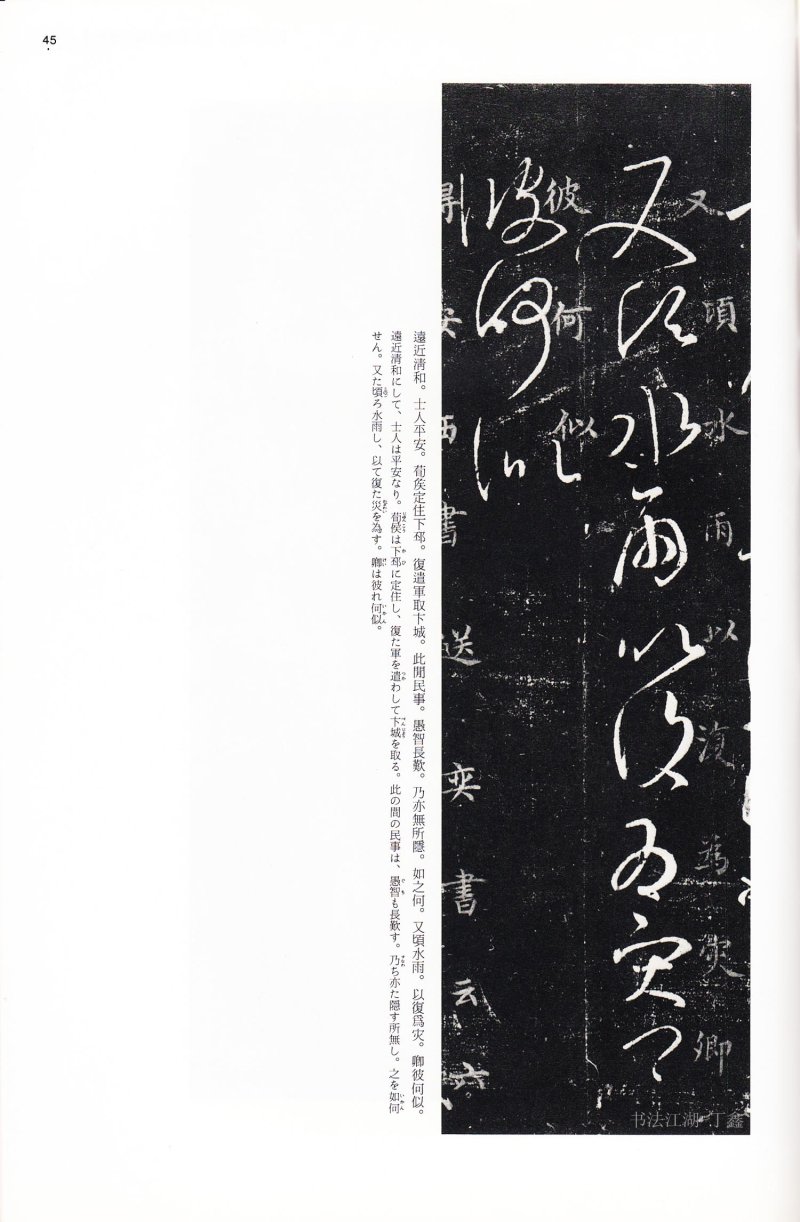 45
又頃水雨以復為災卿
又頃水雨以復為災卿
彼何似
彼何似
得安西書送奕書云六
遠近清和。士人平安。荀矦定住下邳。復遣軍取卞城。此閒民事。愚智長歎。乃亦無所隱。如之何。又頃水雨。以復爲灾。卿彼何似。
遠近清和にして、士人は平安なり。荀侯は下邳に定住し、復た軍を遣わして卞城を取る。此の間の民事は、愚智も長歎す。乃ち亦た隠す所無し。之を如何
せん。又た頃ろ水雨し、以て復た災を為す。卿は彼れ何似。
书法江湖 丁鑫